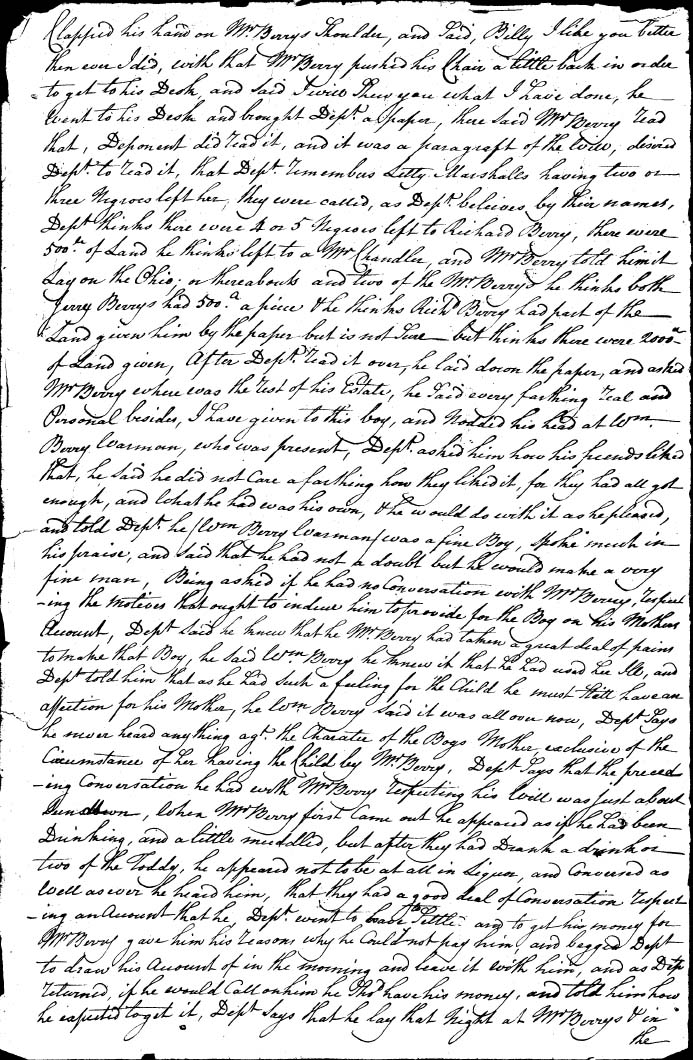 Clapped his hand on Mr Berrys Shoulder, and Said, Billy I like you better
then ever I did, with that Mr Berry pushed his Chair a little back in order
to get to his Desk, and said I will Shew you what I have done, he
Went to his Desk and brought Dept. a paper, there said Mr Berry read
that, Deponent did read it, and it was a paragraft of the Will, desired
Dept. to read it, that Dept. remembers Letty Marshalls having two or
three Negroes left her, they were called, as Dept. beleives by their names,
Dept thinks there were 4 or 5 Negroes left to Richard Berry, there were
500as. of Land he thinks left to a Mr Chandler, and Mr Berry told him it
Lay on the Ohio or thereabouts and two of the Mr Berrys he thinks both
Jerry Berrys had 500.a a piece & he thinks Richd Berry had part of the
Land given him by the paper but is not Sure but thinks there were 2000as
of Land given, After Dept. read it over, he laid down the paper, and asked
Mr Berry where was the rest of his Estate, he Said every farthing real and
Personal besides, I have given to this boy, and Nodded his head at Wm.
Berry Warman, who was present, Dept. asked him how his friends liked
that, he Said he did not Care a farthing how they liked it, for they had all got
enough, and What he had was his own, & he would do with it as he pleased,
and told Dept he (Wm Berry Warman) was a fine Boy, Spoke much in
his praise, and Said that he had not a doubt but he would make a very
fine man, Being asked if he had no Conversation with Mr Berry, respect
-ing the Motives that ought to induce him to provide for the Boy on his Mothers
Account, Dept Said he knew that he Mr. Berry had taken a great deal of pains
to make that Boy, he Said Wm. Berry he knew it that he had used her Ill, and
Dept told him that as he had Such a feeling for the Child he must Still have an
affection for his Mother, he Wm Berry Said it was all over now, Dept Says
he never heard anything agt. the Character of the Boys Mother, exclusive of the
Circumstance of her having the Child by Mr. Berry, Dept Says that the preced
-ing Conversation he had with Mr Berry respecting his Will was just about
Sun down, When Mr Berry first Came out he appeared as if he had been
Drinking, and a little muddled, but after they had Drank a drink or
two of the Toddy, he appeared not to be at all in Liquor, and Conversed as
Well as ever he heard him, that they had a good deal of Conversation respect
-ing an Account that he, Dept. went to Settle and to get his money for
Mr Berry gave him his reasons why he Could not pay him, and begged Dept
to draw his Account of in the morning and leave it with him, and as Dept
returned, if he would Call on him he Shd have his money, and told him how
he expected to get it, Dept Says that he lay that Night at Mr Berrys & in
the